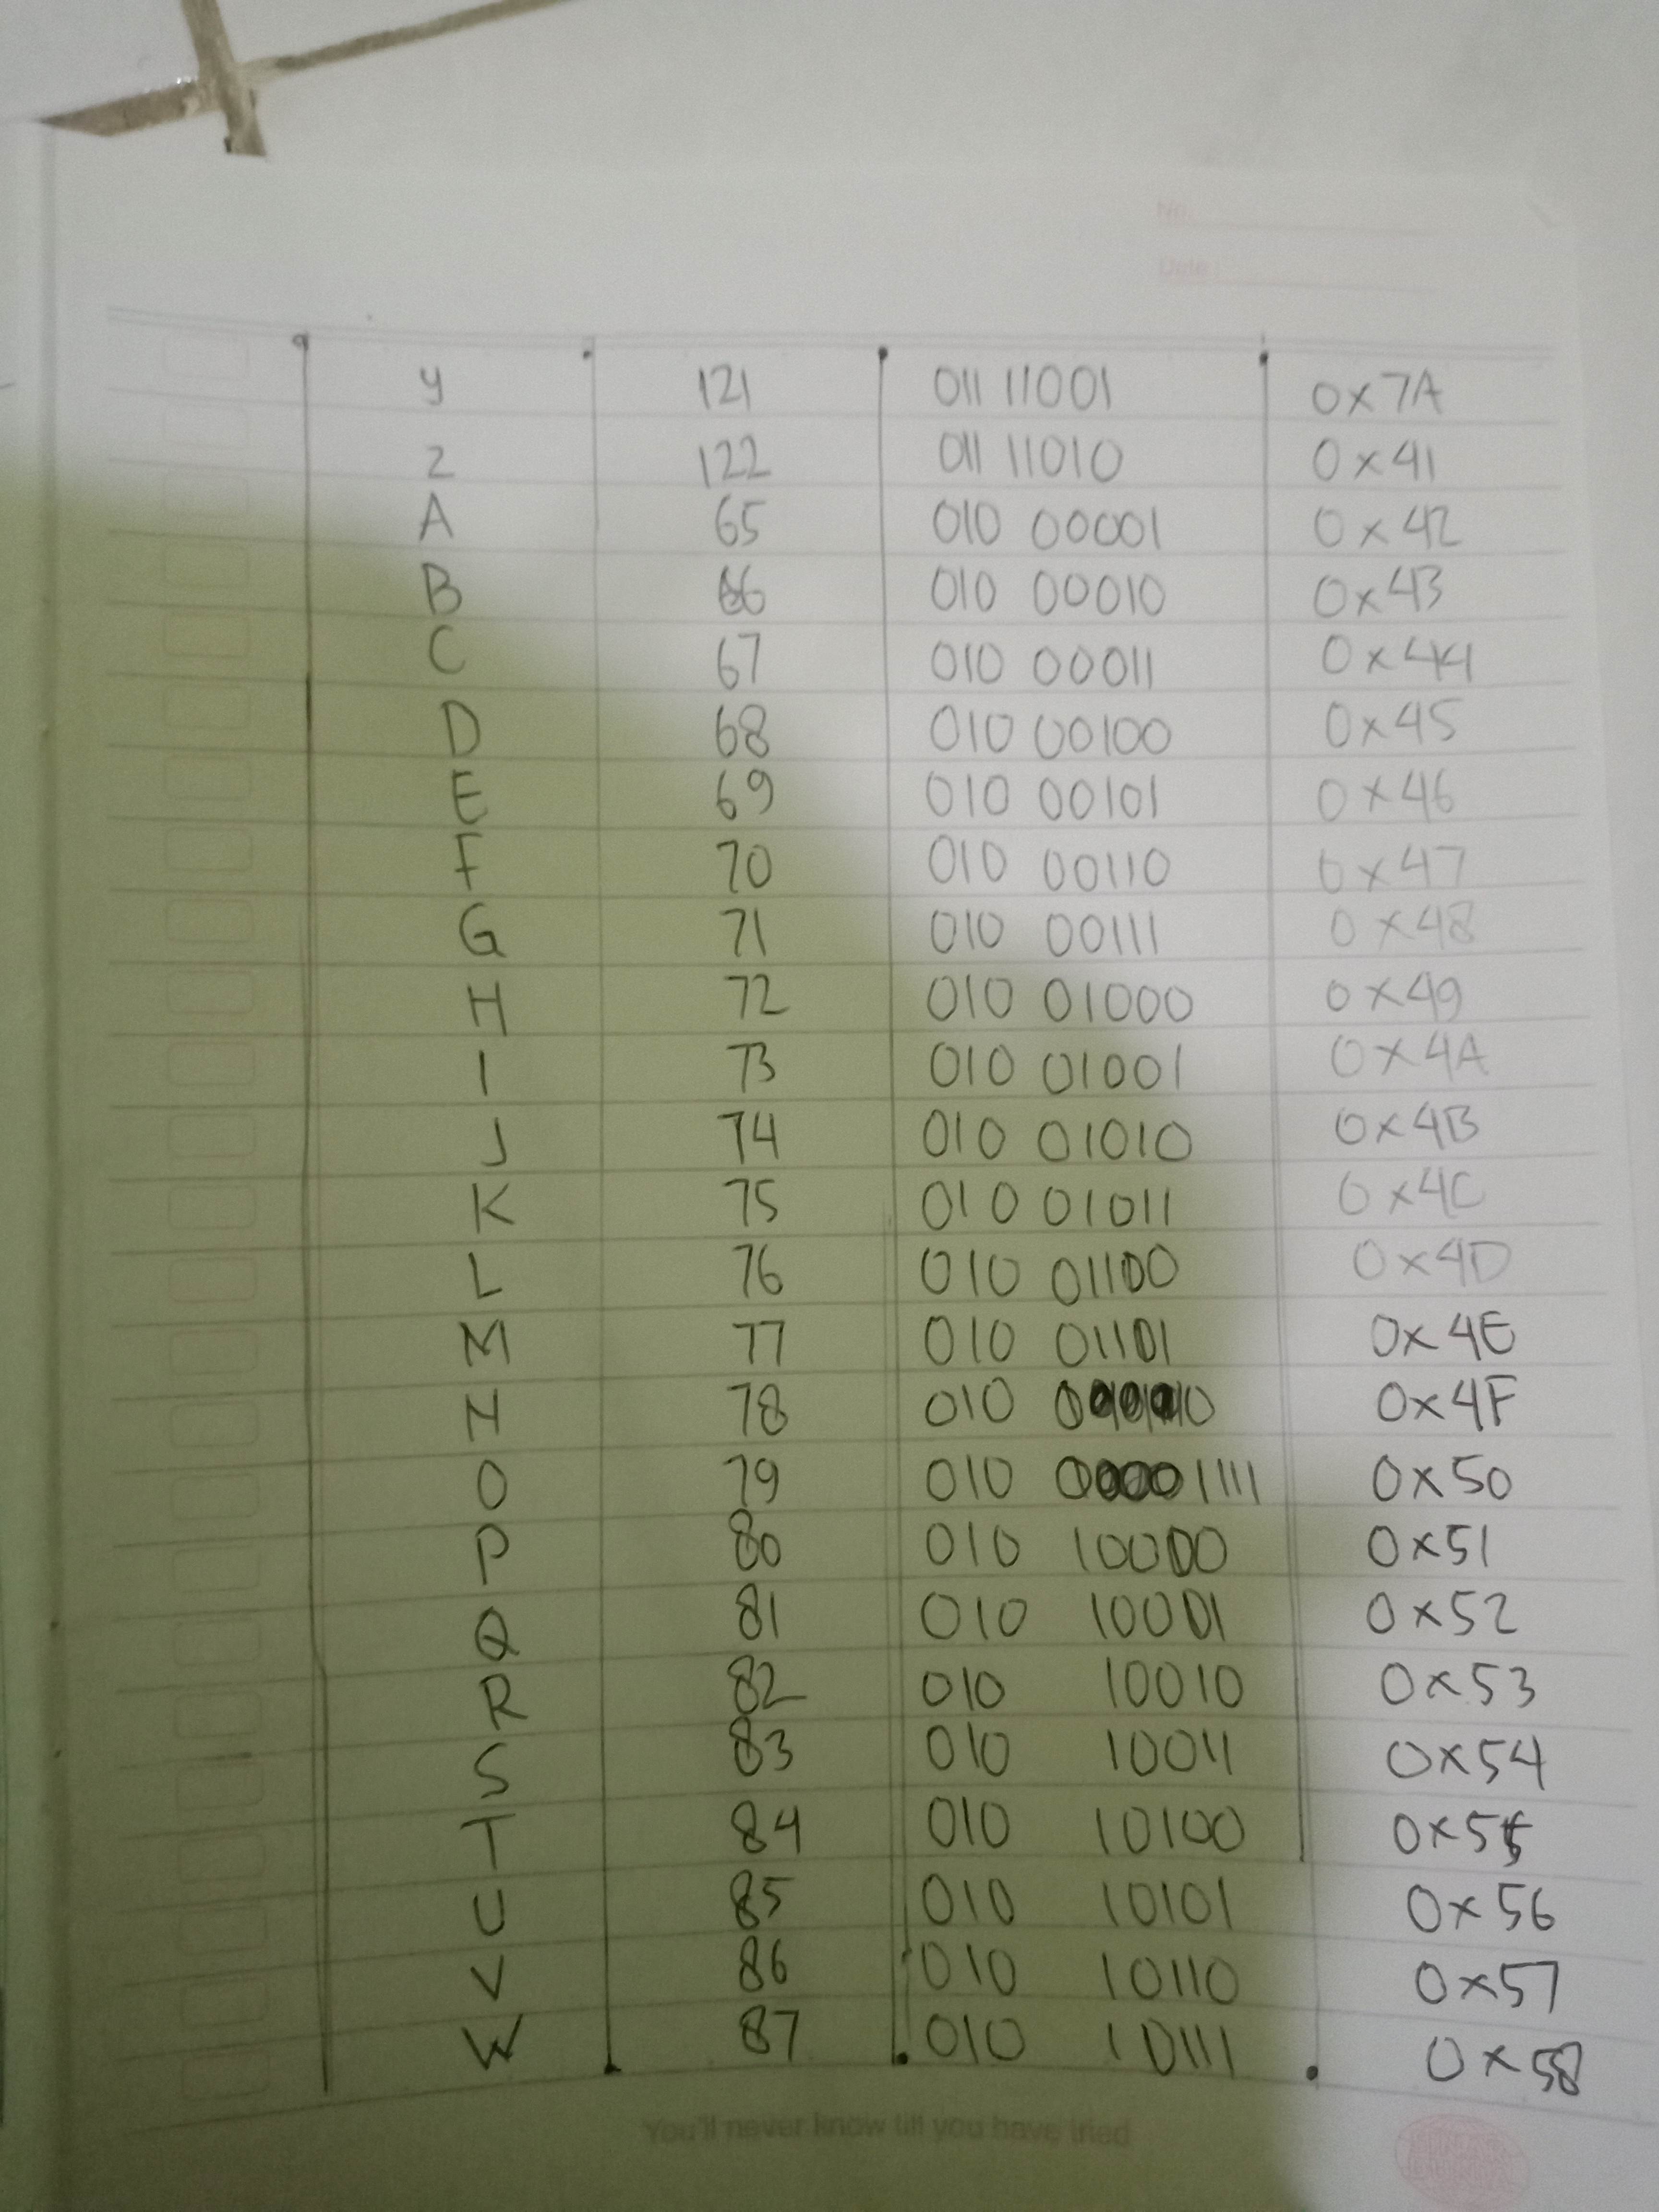 No.
Date
y 121 011 11001 0x7A
z 122 011 11010 0x41
A 65 010 00001 0x42
B 66 010 00010 0x43
C 67 010 00011 0x44
D 68 010 00100 0x45
E 69 010 00101 0x46
F 70 010 00110 0x47
G 71 010 00111 0x48
H 72 010 01000 0x49
I 73 010 01001 0x4A
J 74 010 01010 0x4B
K 75 010 01011 0x4C
L 76 010 01100 0x4D
M 77 010 01101 0x4E
N 78 010 0x4F
O 79 010 0x50
P 80 010 10000 0x51
Q 81 010 10001 0x52
R 82 010 10010 0x53
S 83 010 10011 0x54
T 84 010 10100 0x55
U 85 010 10101 0x56
V 86 010 10110 0x57
W 87 010 10111 0x58
You'll never know till you have tried
SINAR
DUNIA